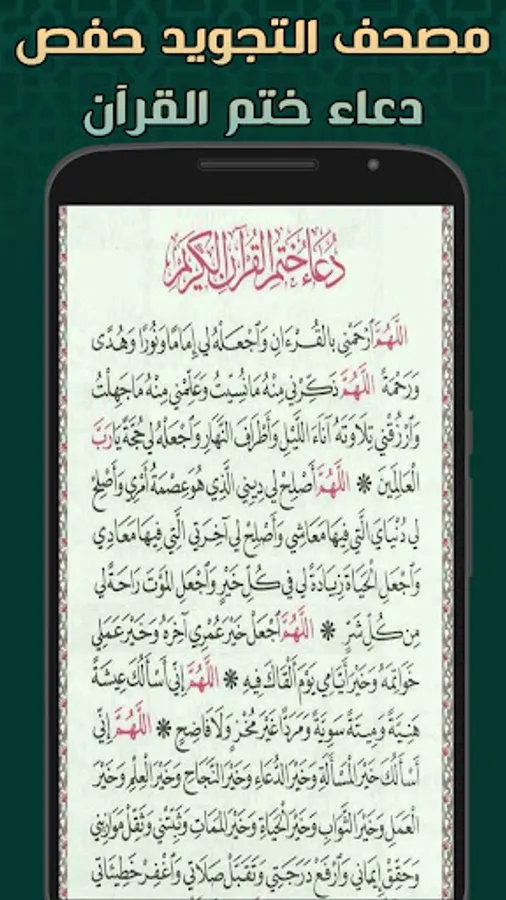 مصحف التجويد حفص
دعاء ختم القرآن
دُعَاءُ خَتْمِ الْقُرْآنِ الْكَرِيمِ
اللَّهُمَّ ٱرْحَمْنِي بالقُرْءَانِ وَٱجْعَلْهُ لِي إِمَامًا وَنُورًا وَهُدًى
وَرَحْمَةً اللَّهُمَّ ذَكِّرْنِي مِنْهُ مَا نَسِيتُ وَعَلِّمْنِي مِنْهُ مَا جَهِلْتُ
وَٱرْزُقْنِي تِلَاوَتَهُ آنَاءَ اللَّيْلِ وَأَطْرَافَ النَّهَارِ وَٱجْعَلْهُ لِي حُجَّةً يَا رَبَّ
الْعَالَمِينَ * اللَّهُمَّ أَصْلِحْ لِي دِينِي الَّذِي هُوَ عِصْمَةُ أَمْرِي وَأَصْلِحْ
لِي دُنْيَايَ الَّتِي فِيهَا مَعَاشِي وَأَصْلِحْ لِي آخِرَتِي الَّتِي فِيهَا مَعَادِي
وَٱجْعَلِ الْحَيَاةَ زِيَادَةً لِي فِي كُلِّ خَيْرٍ وَٱجْعَلِ الْمَوْتَ رَاحَةً لِي
مِن كُلِّ شَرٍّ * اللَّهُمَّ ٱجْعَلْ خَيْرَ عُمْرِي آخِرَهُ وَخَيْرَ عَمَلِي
خَوَاتِمَهُ وَخَيْرَ أَيَّامِي يَوْمَ أَلْقَاكَ فِيهِ * اللَّهُمَّ إِنِّي أَسْأَلُكَ عِيشَةً
هَنِيَّةً وَمِيتَةً سَوِيَّةً وَمَرَدًّا غَيْرَ مُخْزٍ وَلَا فَاضِحٍ * اللَّهُمَّ إِنِّي
أَسْأَلُكَ خَيْرَ الْمَسْأَلَةِ وَخَيْرَ الدُّعَاءِ وَخَيْرَ النَّجَاحِ وَخَيْرَ الْعِلْمِ وَخَيْرَ
الْعَمَلِ وَخَيْرَ الثَّوَابِ وَخَيْرَ الْحَيَاةِ وَخَيْرَ الْمَمَاتِ وَثَبِّتْنِي وَثَقِّلْ مَوَازِينِي
وَحَقِّقْ إِيمَانِي وَٱرْفَعْ دَرَجَتِي وَتَقَبَّلْ صَلَاتِي وَٱغْفِرْ خَطِيئَاتِي